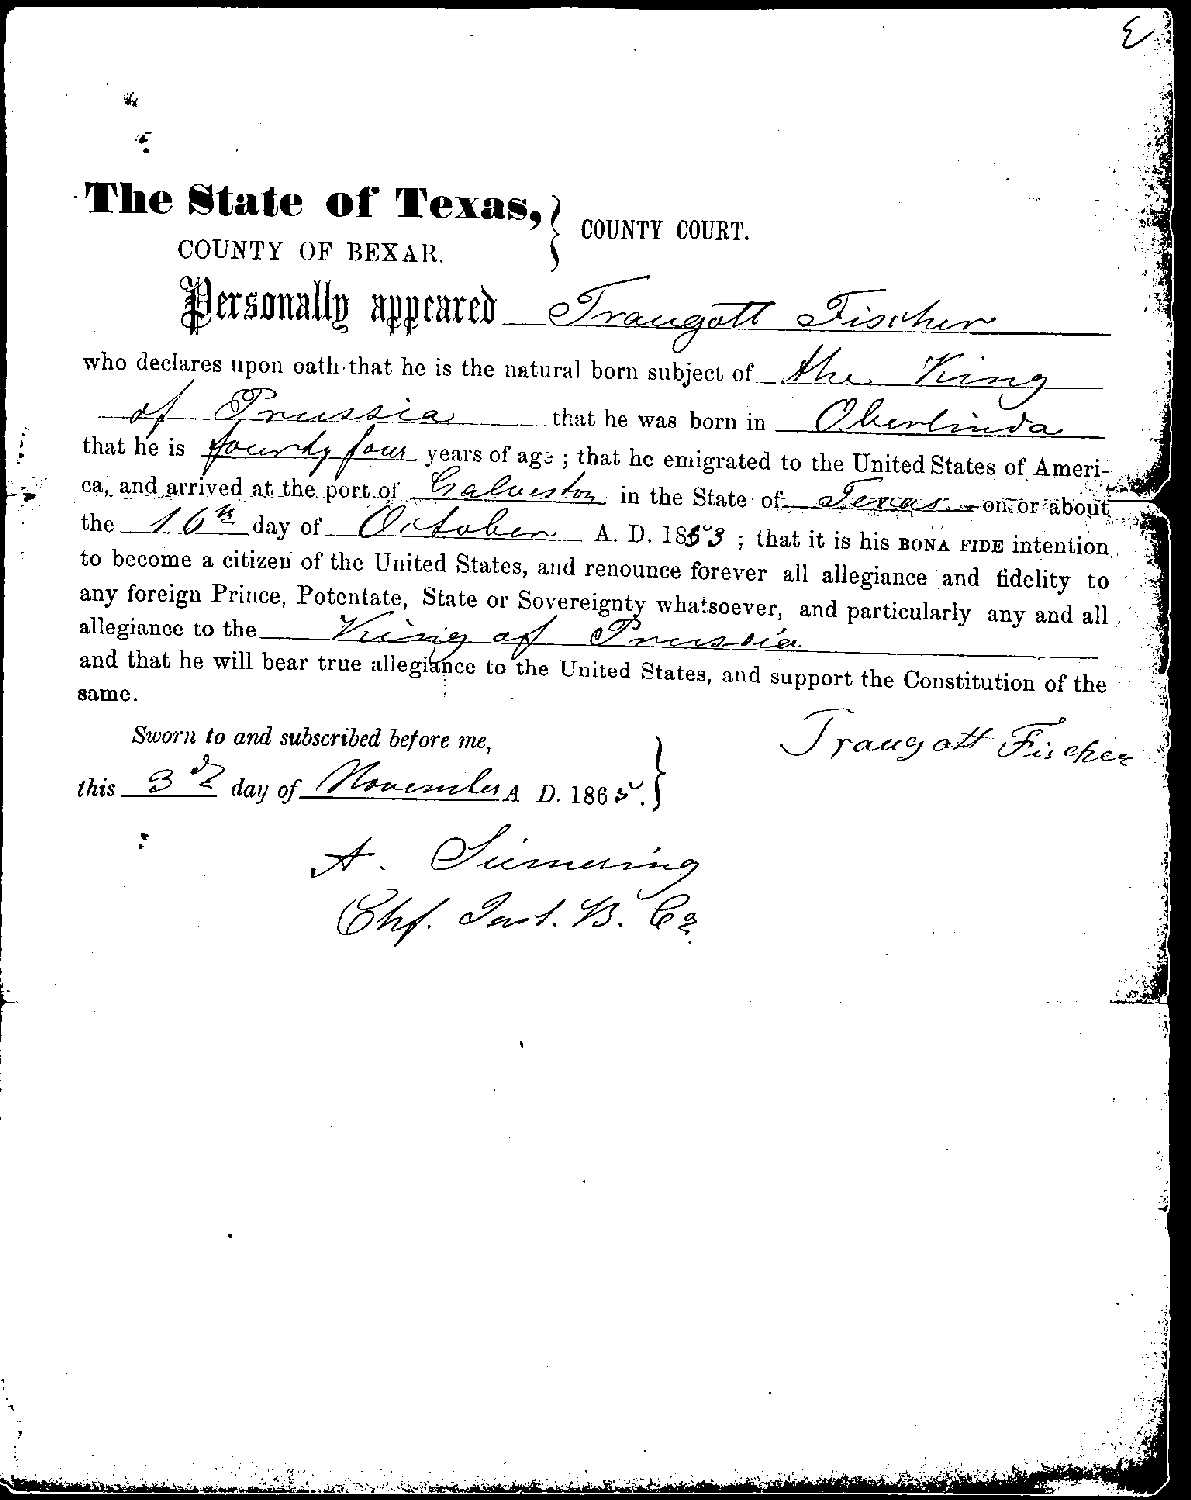 The State of Texas, } COUNTY COURT.
COUNTY OF BEXAR.
Personally appeared Traugott Fischer
who declares upon oath that he is the natural born subject of the King
of Prussia that he was born in Oberlinda
that he is fourdy four years of age; that he emigrated to the United States of Ameri-
ca, and arrived at the port of Galveston in the State of Texas on or about
the 16th day of October A. D. 1853; that it is his BONA FIDE intention
to become a citizen of the United States, and renounce forever all allegiance and fidelity to
any foreign Prince, Potentate, State or Sovereignty whatsoever, and particularly any and all
allegiance to the King of Prussia
and that he will bear true allegiance to the United States, and support the Constitution of the
same.
Traugott Fischer
Sworn to and subscribed before me,
this 3d day of November A D. 1865. }
A. Siemering
Chf. Just. B. Co